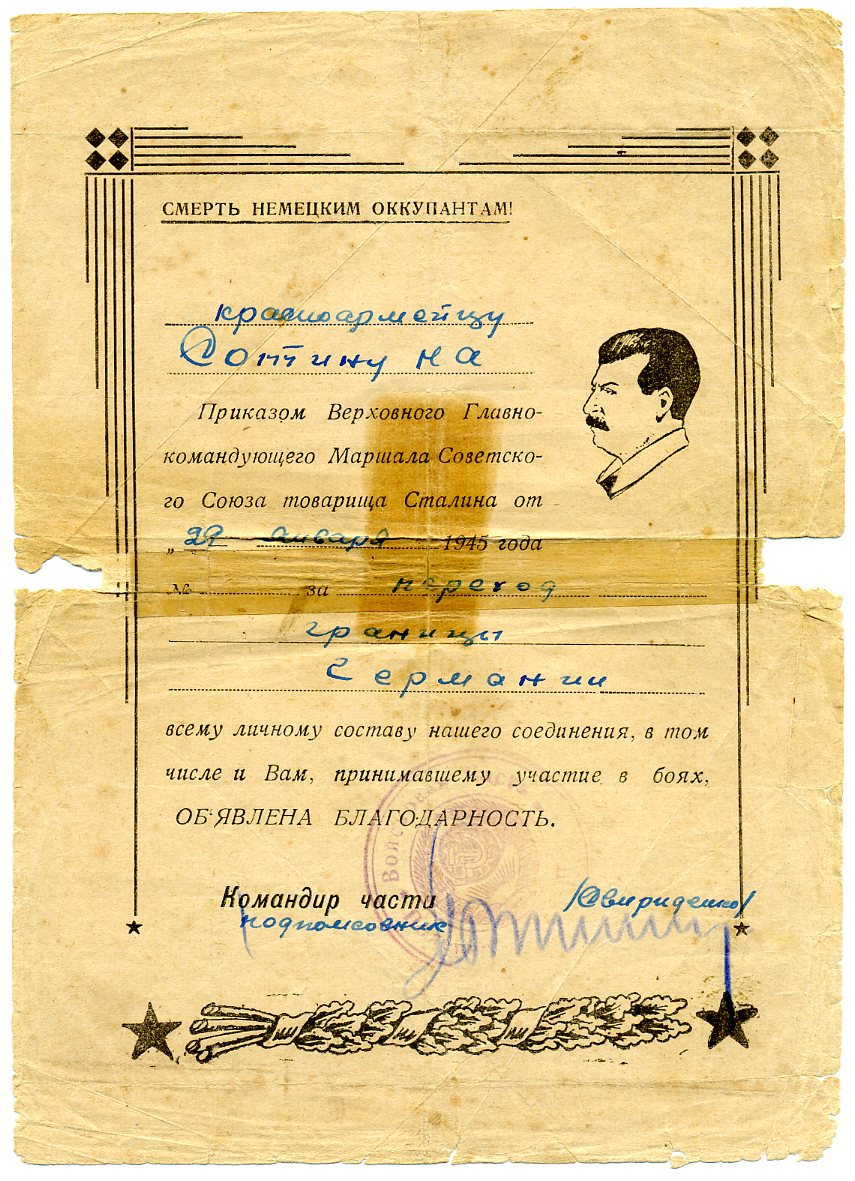 СМЕРТЬ НЕМЕЦКИМ ОККУПАНТАМ!
красноармейцу
Сотину НА
Приказом Верховного Главно-
командующего Маршала Советско-
го Союза товарища Сталина от
„29 января 1945 года
№ за переход
границы
Германии
всему личному составу нашего соединения, в том
числе и Вам, принимавшему участие в боях,
ОБ'ЯВЛЕНА БЛАГОДАРНОСТЬ.
Командир части
подполковник /Свириденко/
Войсковая